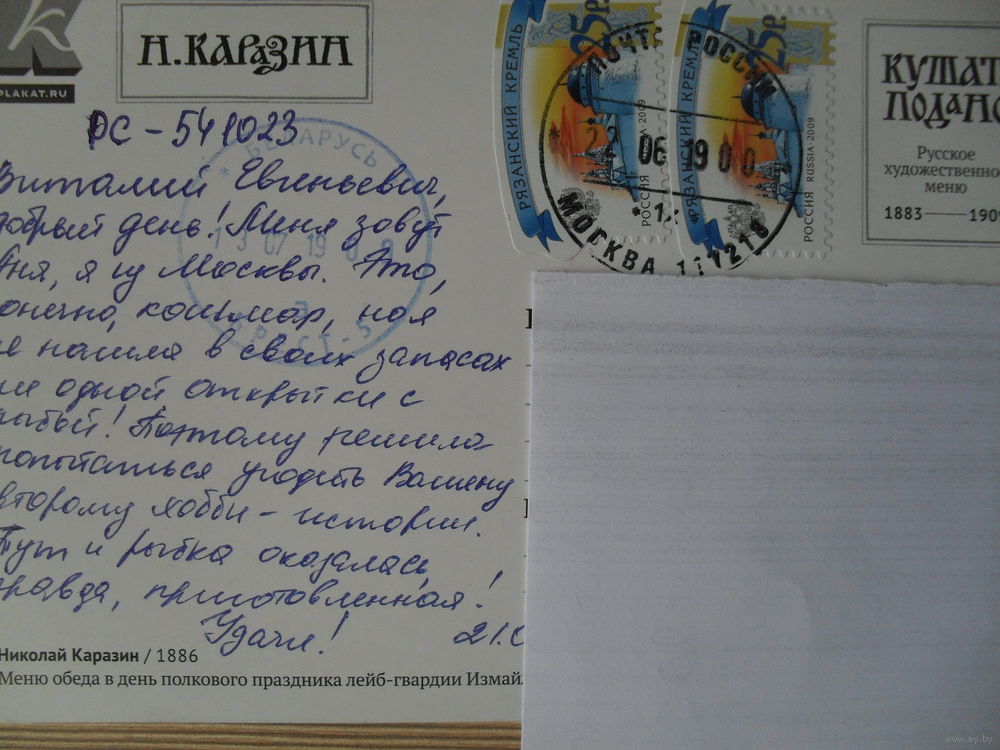 PLAKAT.RU
Н.КАРАЗИН
РЯЗАНСКИЙ КРЕМЛЬ
25р
РОССИЯ RUSSIA·2009
РЯЗАНСКИЙ КРЕМЛЬ
25р
РОССИЯ RUSSIA·2009
ПОЧТА РОССИИ
22 06 19 00
МОСКВА 117218
КУШАТ
ПОДАНО
Русское
художественно
меню
1883 — 190
РС - 541023
БЕЛАРУСЬ
13 07 19
БРЕСТ-5
Виталий Евгеньевич,
добрый день! Меня зовут
Аня, я из Москвы. Это,
онечно, кошмар, но я
не нашла в своих запасах
ни одной открытки с
рыбой! Поэтому решила
попытаться угодить Вашему
второму хобби - истории.
Тут и рыбка оказалась,
правда, приготовленная!
Удачи! 21.0
Николай Каразин / 1886
Меню обеда в день полкового праздника лейб-гвардии Измай
www.ay.by